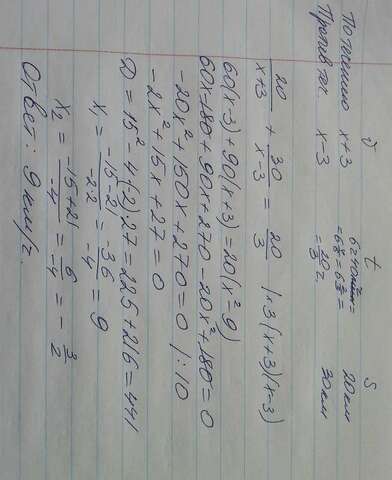 v t S
По течению x+3 6ч40мин= 20км
=6 4/6=6 2/3=
Против теч. x-3 =20/3 ч. 30км
20/(x+3) + 30/(x-3) = 20/3 |×3(x+3)(x-3)
60(x-3)+90(x+3)=20(x²-9)
60x-180+90x+270-20x²+180=0
-20x²+150x+270=0 |:10
-2x²+15x+27=0
D=15²-4·(-2)·27=225+216=441
x₁=(-15-21)/(-2·2)=-36/-4=9
x₂=(-15+21)/-4=6/-4=-3/2
Ответ: 9км/ч.